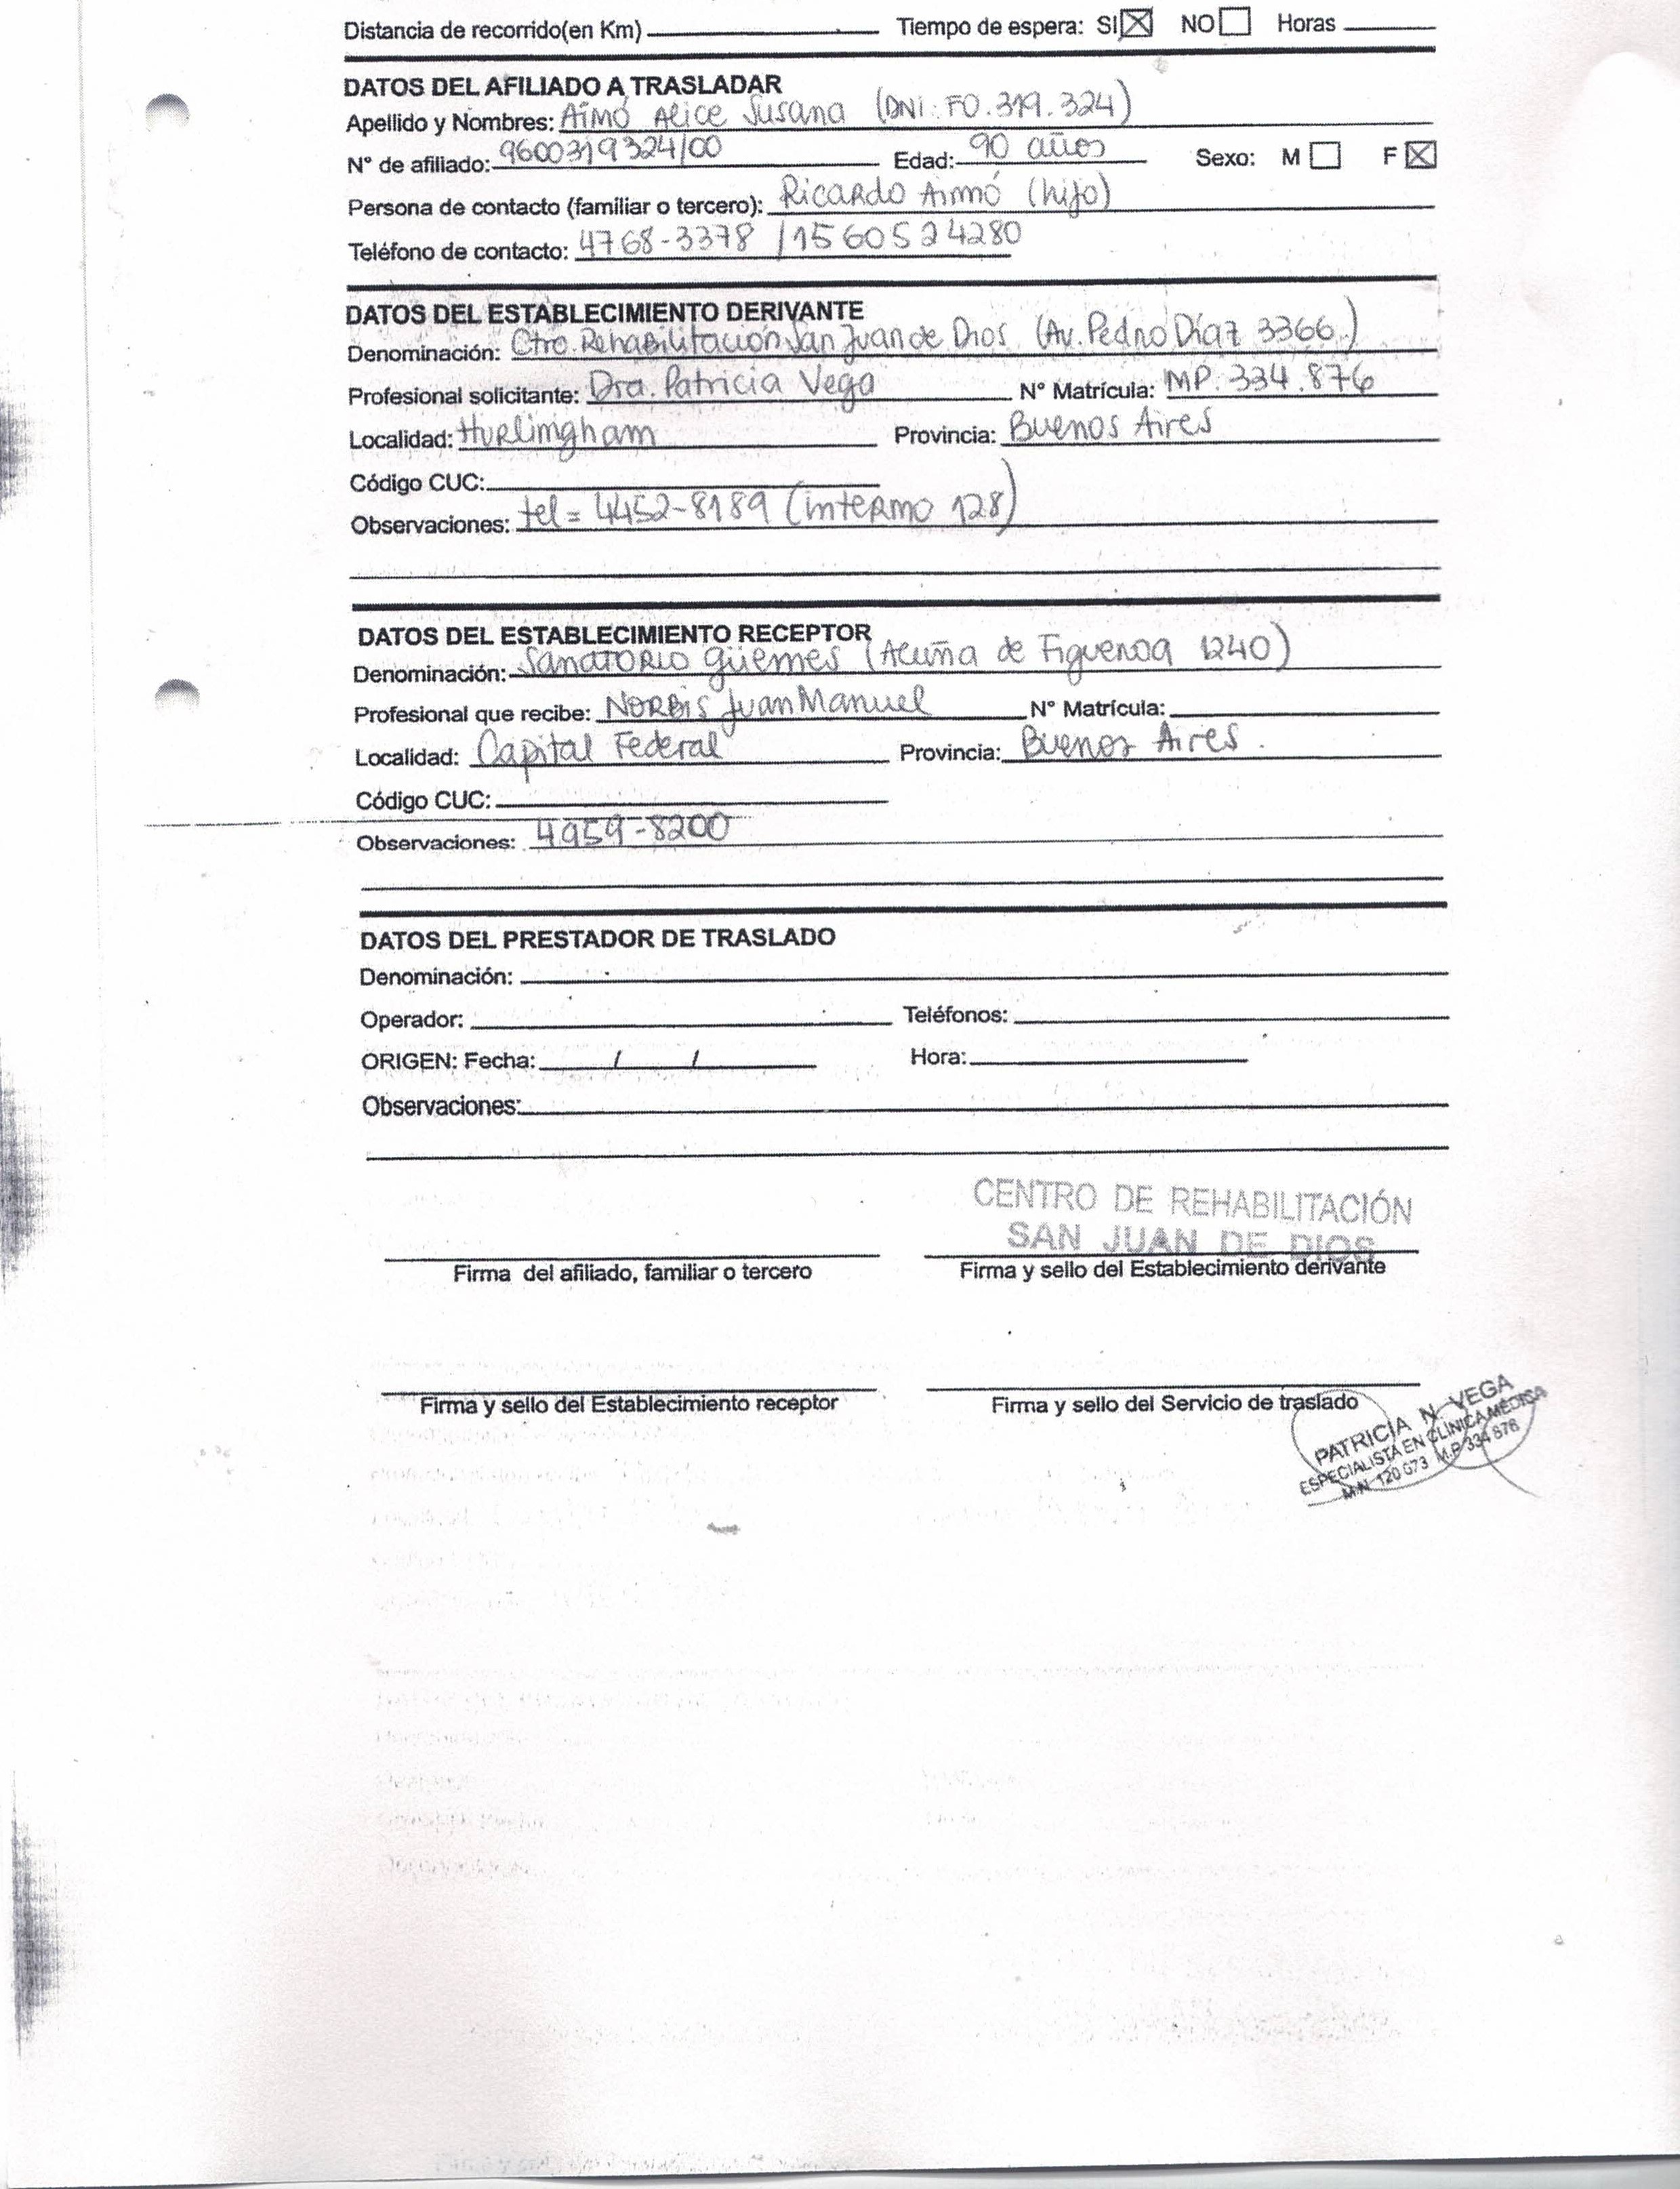 Distancia de recorrido(en Km) Tiempo de espera: SI NO Horas
DATOS DEL AFILIADO A TRASLADAR
Apellido y Nombres: Aimó Alice Susana (DNI: F0.319.324)
N° de afiliado: 9600319324/00 Edad: 90 años Sexo: M F
Persona de contacto (familiar o tercero): Ricardo Aimó (hijo)
Teléfono de contacto: 4768-3378 / 1560524280
DATOS DEL ESTABLECIMIENTO DERIVANTE
Denominación: Ctro. Rehabilitación San Juan de Dios (Av. Pedro Díaz 3366.)
Profesional solicitante: Dra. Patricia Vega N° Matrícula: MP. 334.876
Localidad: Hurlimgham Provincia: Buenos Aires
Código CUC:
Observaciones: tel = 4452-8189 (interno 128)
DATOS DEL ESTABLECIMIENTO RECEPTOR
Denominación: Sanatorio Güemes (Acuña de Figueroa 1240)
Profesional que recibe: Norbis Juan Manuel N° Matrícula:
Localidad: Capital Federal Provincia: Buenos Aires.
Código CUC:
Observaciones: 4959-8200
DATOS DEL PRESTADOR DE TRASLADO
Denominación:
Operador: Teléfonos:
ORIGEN: Fecha: / / Hora:
Observaciones:
CENTRO DE REHABILITACIÓN
SAN JUAN DE DIOS
Firma del afiliado, familiar o tercero Firma y sello del Establecimiento derivante
Firma y sello del Establecimiento receptor Firma y sello del Servicio de traslado
PATRICIA N. VEGA
ESPECIALISTA EN CLÍNICA MÉDICA
M.N. 120 673 M.P 334 876